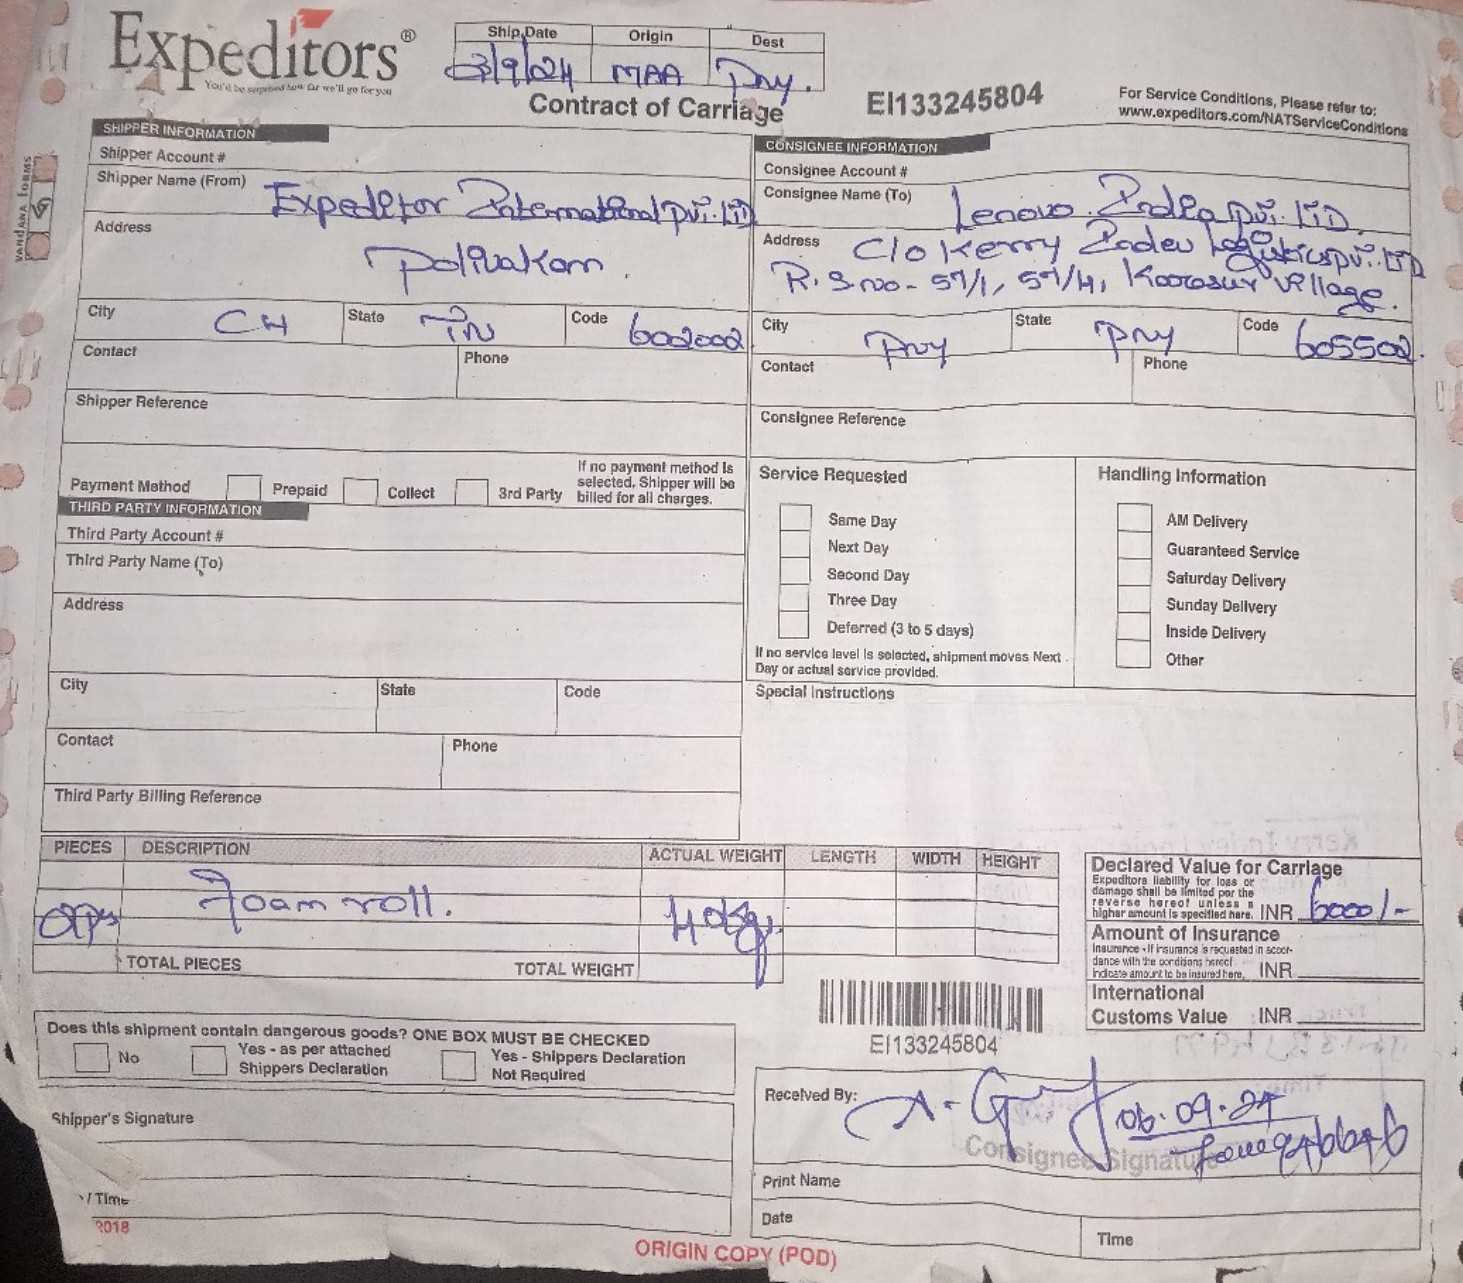 Expeditors®
You'd be surprised how far we'll go for you
Ship Date Origin Dest
3/9/24 MAA Pny.
Contract of Carriage
EI133245804
For Service Conditions, Please refer to:
www.expeditors.com/NATServiceConditions
VANDANA FORMS
SHIPPER INFORMATION
Shipper Account #
Shipper Name (From)
Expeditor International Pvt. LTD
Address
Polivakam.
City CH State TN Code 602002
Contact Phone
Shipper Reference
Payment Method Prepaid Collect 3rd Party
If no payment method is
selected, Shipper will be
billed for all charges.
CONSIGNEE INFORMATION
Consignee Account #
Consignee Name (To) Lenovo India Pvt. LTD.
Address C/o Kerry Indev Logistics Pvt. LTD
R.S.no - 57/1, 57/4, Koorasur village.
City Pny State Pny Code 605502.
Contact Phone
Consignee Reference
THIRD PARTY INFORMATION
Third Party Account #
Third Party Name (To)
Address
City State Code
Contact Phone
Third Party Billing Reference
Service Requested
Same Day
Next Day
Second Day
Three Day
Deferred (3 to 5 days)
If no service level is selected, shipment moves Next
Day or actual service provided.
Handling Information
AM Delivery
Guaranteed Service
Saturday Delivery
Sunday Delivery
Inside Delivery
Other
Special Instructions
PIECES DESCRIPTION ACTUAL WEIGHT LENGTH WIDTH HEIGHT
Foam roll. 40kg.
TOTAL PIECES TOTAL WEIGHT
Declared Value for Carriage
Expeditors liability for loss or
damage shall be limited per the
reverse hereof unless a
higher amount is specified here. INR 6000/-
Amount of Insurance
Insurance - If insurance is requested in accor-
dance with the conditions hereof
indicate amount to be insured here. INR
International
Customs Value INR
EI133245804
Does this shipment contain dangerous goods? ONE BOX MUST BE CHECKED
No
Yes - as per attached
Shippers Declaration
Yes - Shippers Declaration
Not Required
Shipper's Signature
/ Time
2018
Received By:
06.09.24
Consignee Signature
Print Name
Date Time
ORIGIN COPY (POD)